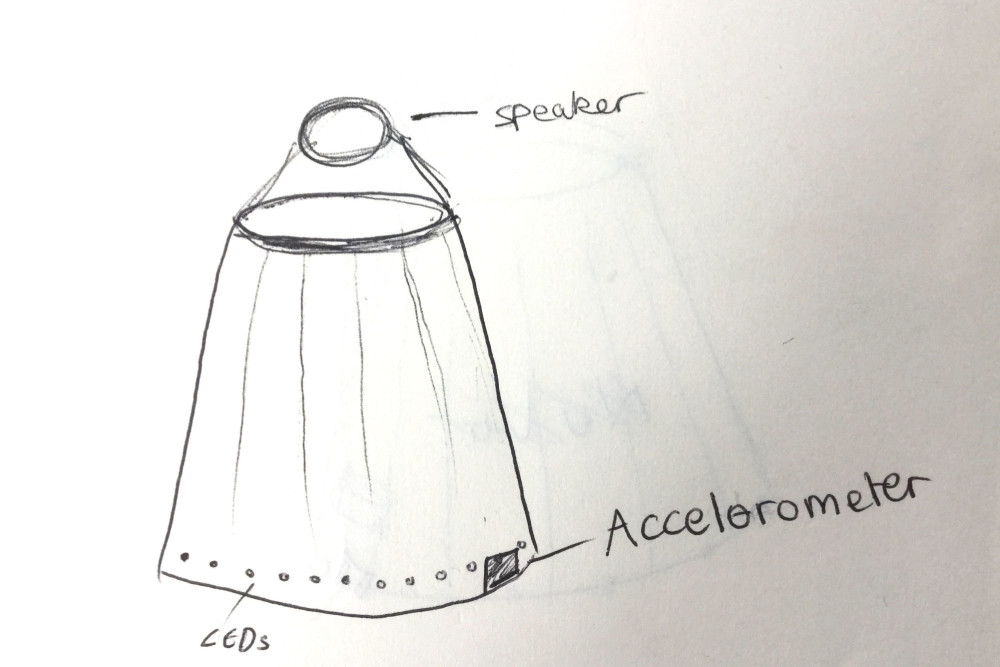 speaker
Accelorometer
LEDs